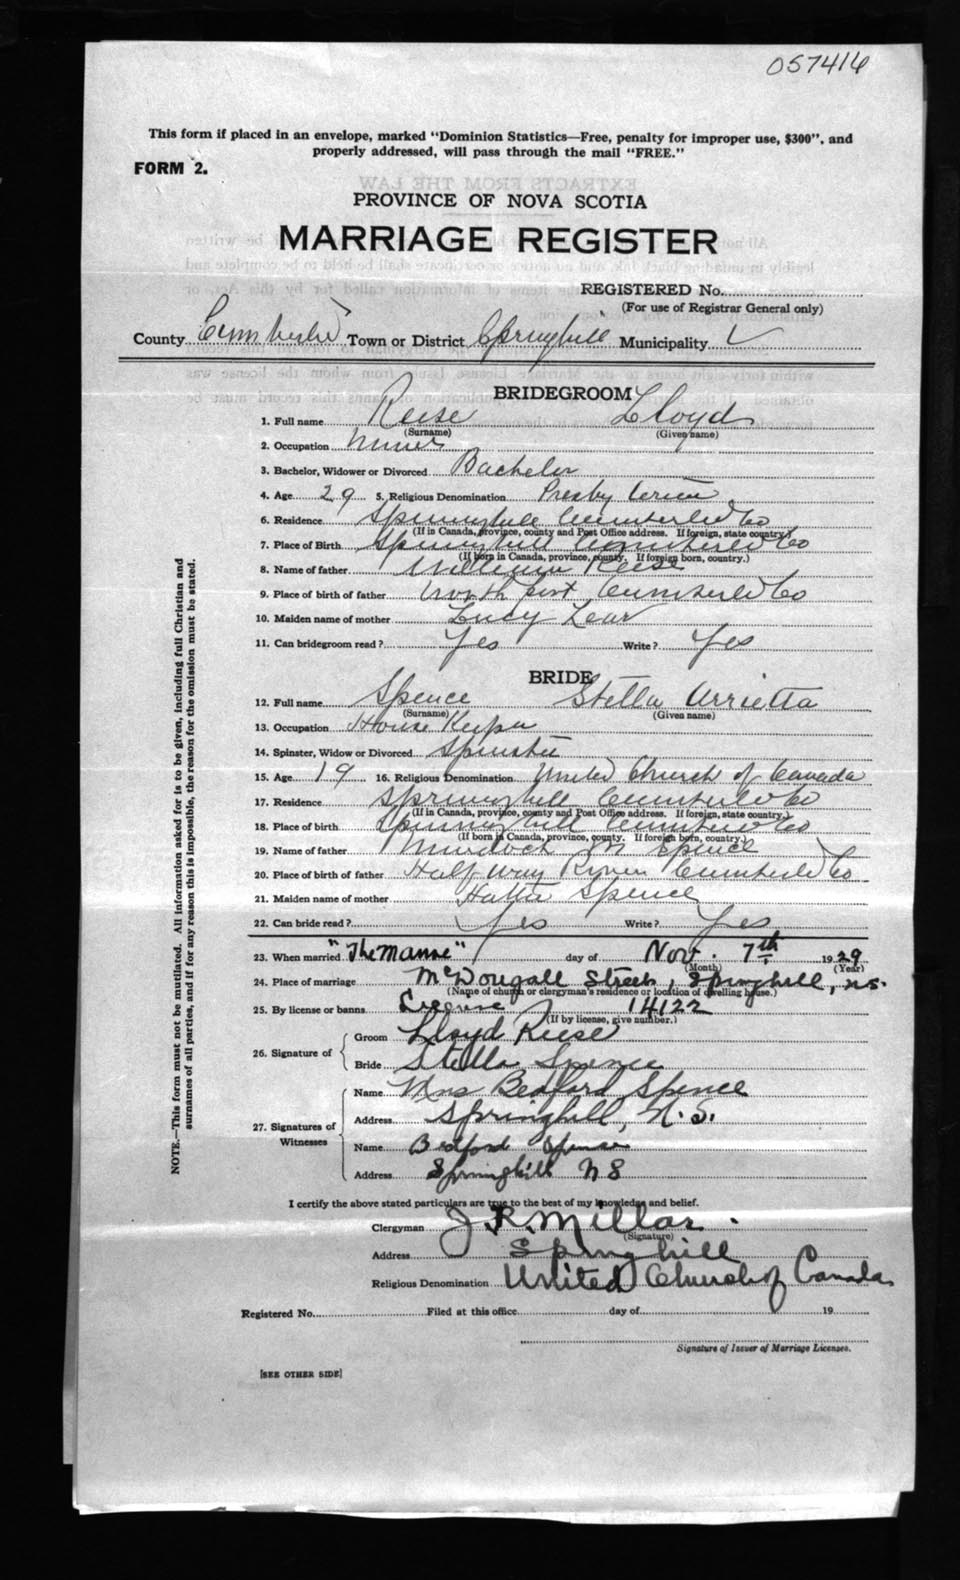 057416
This form if placed in an envelope, marked "Dominion Statistics—Free, penalty for improper use, $300", and
properly addressed, will pass through the mail "FREE."
FORM 2.
EXTRACTS FROM THE LAW
PROVINCE OF NOVA SCOTIA
MARRIAGE REGISTER
REGISTERED No.
(For use of Registrar General only)
County Cumberld Town or District Springhill Municipality
BRIDEGROOM
1. Full name Reese Lloyd
(Surname) (Given name)
2. Occupation Miner
3. Bachelor, Widower or Divorced Bachelor
4. Age 29 5. Religious Denomination Presbyterian
6. Residence Springhill Cumberld Co
(If in Canada, province, county and Post Office address. If foreign, state country.)
7. Place of Birth Springhill Cumberld Co
(If born in Canada, province, county. If foreign born, country.)
8. Name of father William Reese
9. Place of birth of father North port Cumberld Co
10. Maiden name of mother Lucy
11. Can bridegroom read? Yes Write? Yes
BRIDE
12. Full name Spence Stella Arrietta
(Surname) (Given name)
13. Occupation House Keeper
14. Spinster, Widow or Divorced Spinster
15. Age 19 16. Religious Denomination United Church of Canada
17. Residence Springhill Cumberld Co
(If in Canada, province, county and Post Office address. If foreign, state country.)
18. Place of birth Springhill Cumberld Co
(If born in Canada, province, county. If foreign born, country.)
19. Name of father Murdoch Spence
20. Place of birth of father Half way River Cumberld Co
21. Maiden name of mother Hattie Spence
22. Can bride read? Yes Write? Yes
23. When married "The Manse" day of Nov. 7th 1929
(Month) (Year)
24. Place of marriage McDougall Street, Springhill, N.S.
(Name of church or clergyman's residence or location of dwelling house.)
25. By license or banns License 14122
(If by license, give number.)
26. Signature of Groom Lloyd Reese
Bride Stella Spence
27. Signatures of Witnesses Name Mrs Bedford Spence
Address Springhill, N.S.
Name Bedford Spence
Address Springhill N S
I certify the above stated particulars are true to the best of my knowledge and belief.
Clergyman J R Millar.
(Signature)
Address Springhill
Religious Denomination United Church of Canada
Registered No. Filed at this office day of 19
Signature of Issuer of Marriage Licenses.
[SEE OTHER SIDE]
NOTE.—This form must not be mutilated. All information asked for is to be given, including full Christian and
surnames of all parties, and if for any reason this is impossible, the reason for the omission must be stated.